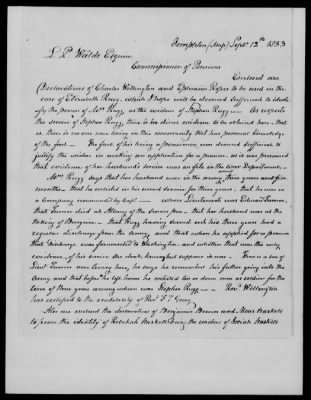 Templeton (Mass) Sept 12th 1853
L P Waldo Esquire
Commissioner of Pensions
Enclosed are
Declarations of Charles Wellington and Ephraim Ropes to be used in the
case of Elizabeth Rugg, which I hope will be deemed sufficient to identi-
fy the person of Mrs Rugg as the widow of Stephen Rugg — As respects
the service of Stephen Rugg, there is no direct evidence to be obtained here, that
is, there is no one now living in this community that has personal knowledge
of the fact — The fact of his being a pensioner was deemed sufficient to
justify the widow in making an application for a pension, as it was presumed
that evidence of her husband's service was on file in the War Department.
Mrs Rugg says that her husband was in the army three years and five
months — that he enlisted in his second service for three years, that he was in
a Company commanded by Capt — whose Lieutenant was
that Turner died at Albany of the — that her husband was at the
taking of Burgoyne — that Rugg having served out his three years had a
regular discharge from the Army, and that when he applied for a pension
that discharge was forwarded to Washington, and whether that was the only
evidence of his service she does not know, but supposes it was — From a son of
Lieut Turner now living here, he says he remembers his father going into the
Army and that before he left home he enlisted ten or dozen men as soldiers for the
term of three years among whom was Stephen Rugg — Revd Wellington
has certified to the credibility of Revd F. T. Gray
Also are enclosed the declaration of Benjamin Brown and Haskell
to prove the identity of Rebekah Haskell being the widow of Josiah Haskell